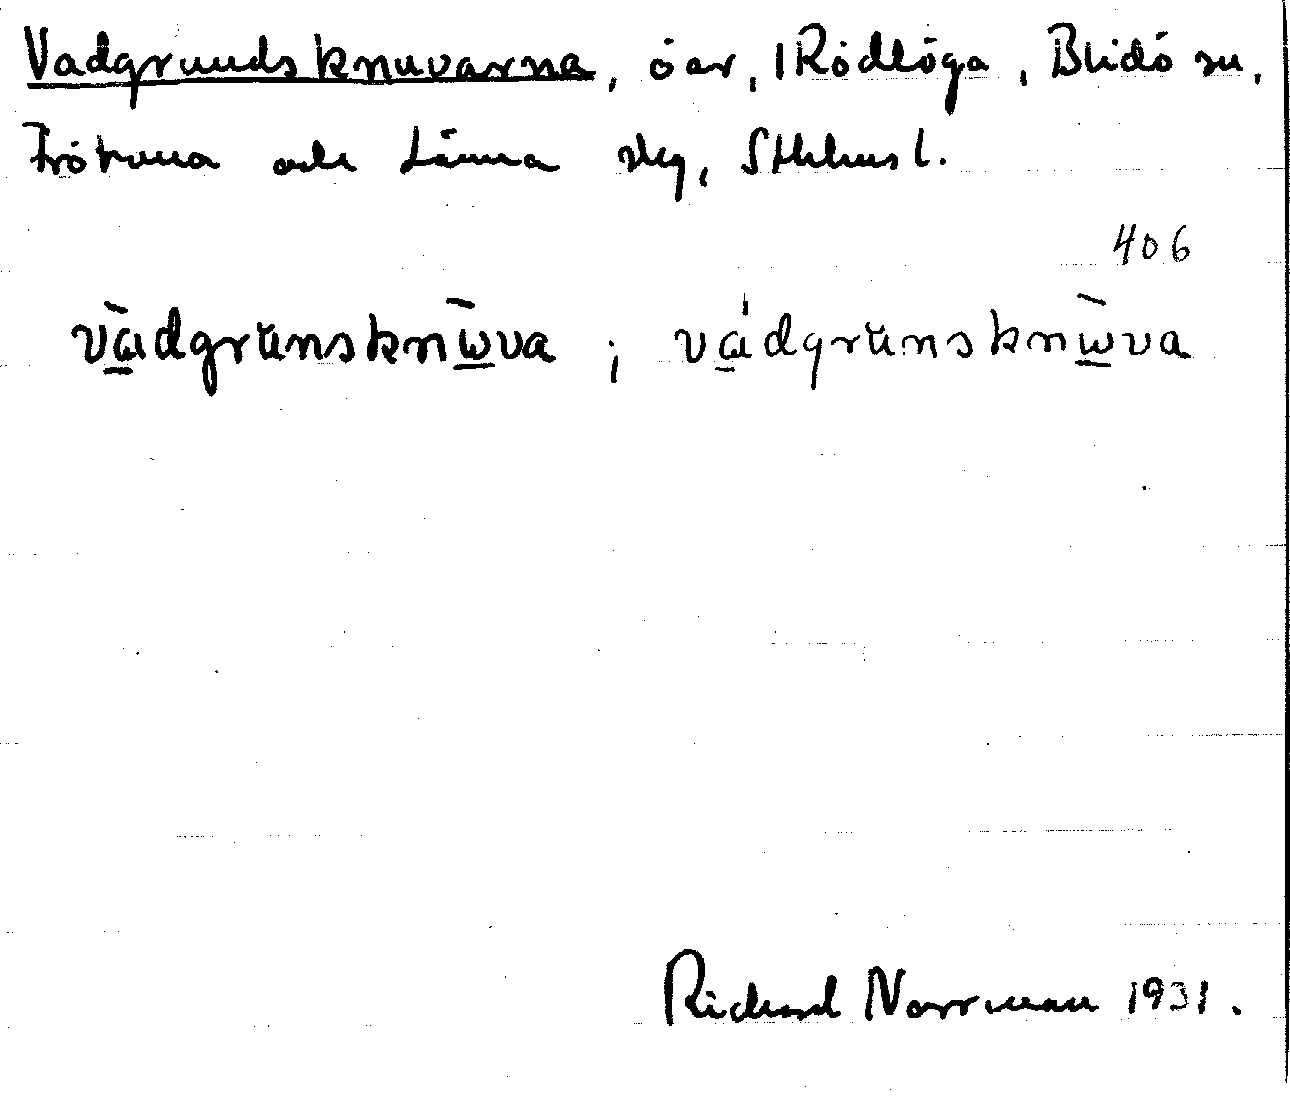 Vadgrundsknuvarna, öar, i Rödlöga, Blidö sn,
Frötuna och Länna skg, Sthlms l.
406
vàdgrŭnsknẁva ; vádgrŭnsknẁva
Richard Norrman 1931.